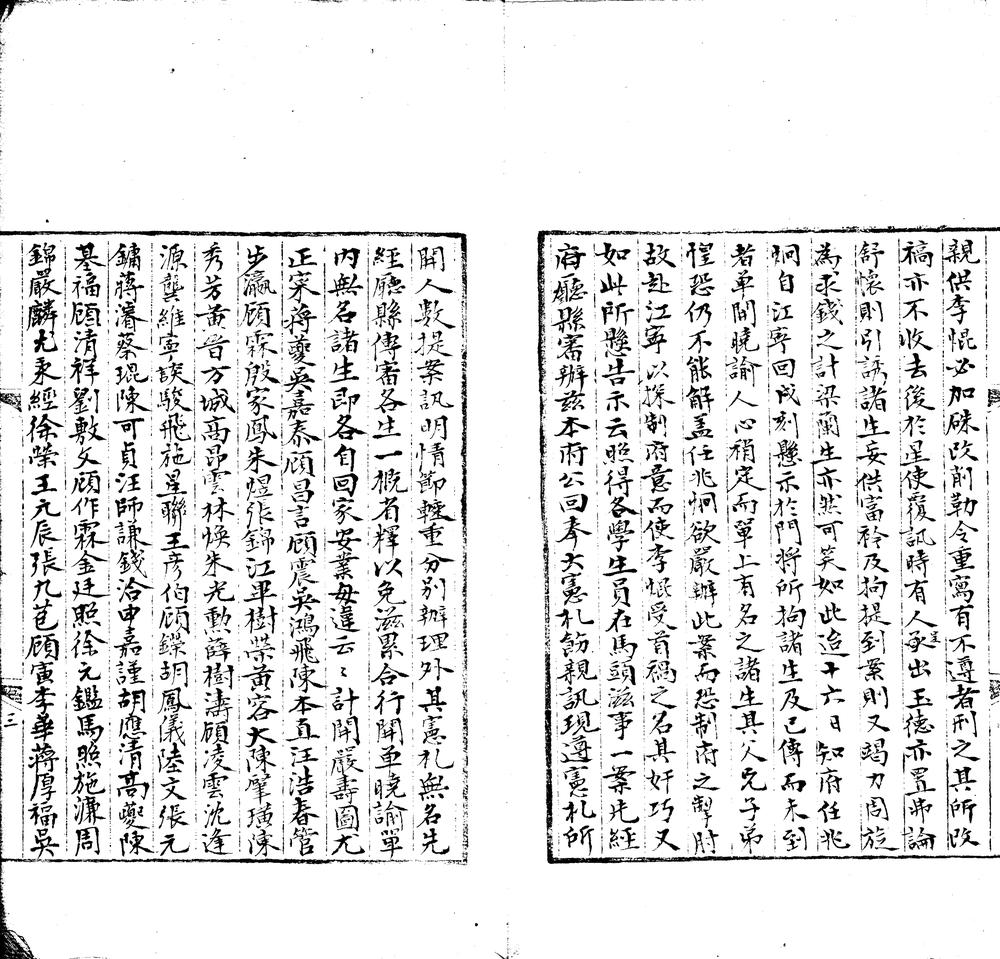 親供李焜必加硃改削勒令重寫有不遵者刑之其所改
稿亦不收去後於星使覆訊時有人呈出玉德亦置弗論
舒懷則引誘諸生妄供富衿及拘提到案則又竭力周旋
為求錢之計梁蘭生亦然可笑如此迨十六日知府任兆
炯自江寧回戌刻懸示於門將所拘諸生及已傳而未到
者單開曉諭人心稍定而單上有名之諸生其父兄子弟
惶恐仍不能解蓋任兆炯欲嚴辦此案而恐制府之掣肘
故赴江寧以探制府意而使李焜受首禍之名其奸巧又
如此所懸告示云照得各學生員在馬頭滋事一案先經
府廳縣審辦茲本府公回奉大憲札飭親訊現遵憲札所
開人數提案訊明情節輕重分別辦理外其憲札無名先
經廳縣傳審各生一概省釋以免滋累合行開單曉諭單
內無名諸生即各自回家安業毋違云云計開嚴壽圖尤
正寀蔣夔吳嘉泰顧昌言顧震吳鴻飛陳本直汪浩春管
步瀛顧霖殷家鳳朱煜張錦江畢樹榮黃容大陳肇璜陳
秀芳黃晉方城高昂雲林煥朱光勲薛樹濤顧凌雲沈逢
源龔維寧談駿飛施星聯王彥伯顧鑅胡鳳儀陸文張元
鏞蔣濬蔡琨陳可貞汪師謙錢洽申嘉謹胡應清高夔陳
基福顧清祥劉敷文顧作霖金廷照徐元鑑馬照施濂周
錦嚴麟尤秉經徐榮王元辰張九苞顧寅李華蔣厚福吳
三